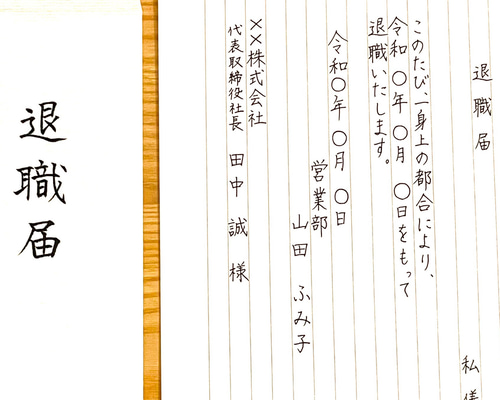 退職届
私儀
このたび、一身上の都合により、
令和〇年〇月〇日をもって
退職いたします。
令和〇年〇月〇日
営業部
山田 ふみ子
××株式会社
代表取締役社長 田中 誠 様
退職届